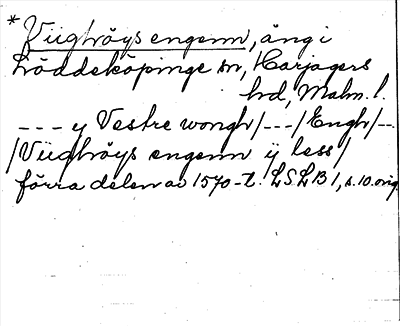 * Viighöys engenn, äng i
Löddeköpinge sn, Harjagers
hd, Malm. l.
--- y Vestre wongh/---/Engh/--
/Viighöys engenn ÿ less/
förra delen av 1570-t. LSLB 1, s. 10. orig.